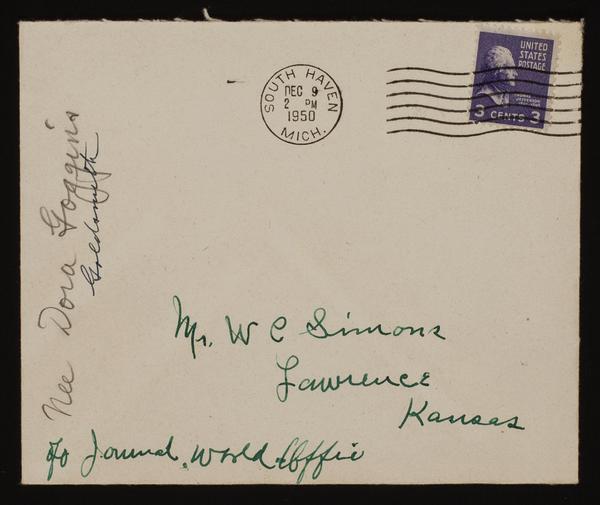 SOUTH HAVEN
DEC 9
2 PM
1950
MICH.
UNITED
STATES
POSTAGE
THOMAS
JEFFERSON
3 CENTS 3
Nee Dora Goggins
Goldsmyth
Mr. W C Simons
Lawrence
Kansas
℅ Journal. World Offic